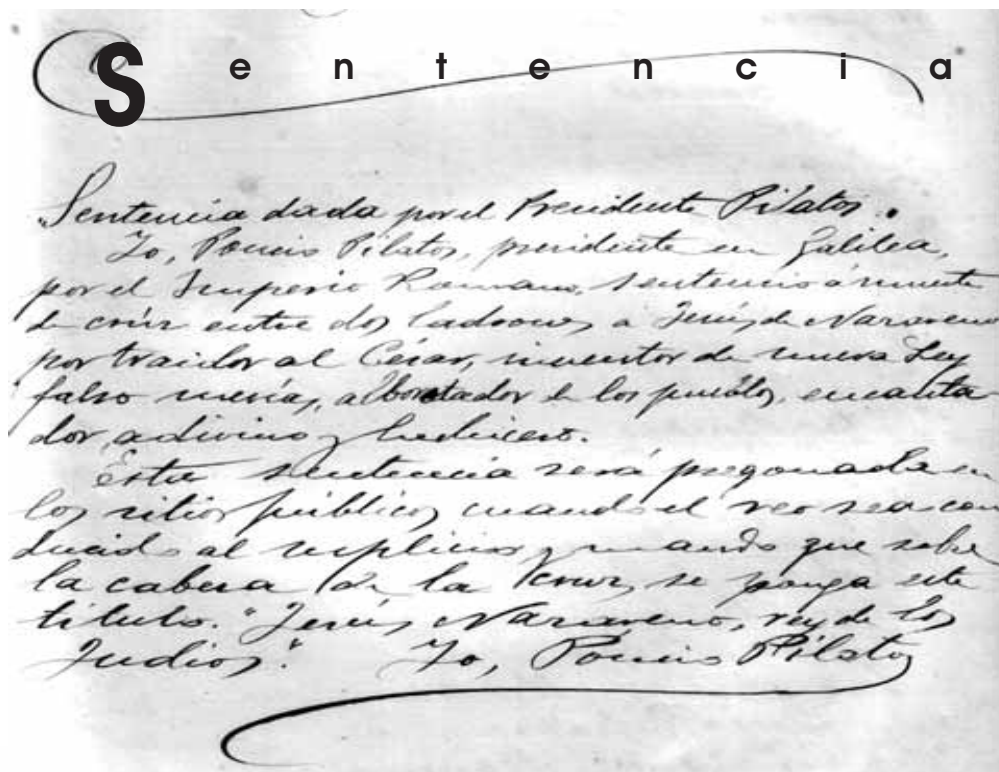 Sentencia
Sentencia dada por el Presidente Pilatos.
Yo, Poncio Pilatos, presidente en Galilea,
por el Imperio Romano, sentencio á muerte
de crúz entre dos ladrones a Jesús de Nazareno
por traidor al César, inventor de nueva Ley
falso mesía, alborotador de los pueblos, encanta
dor, adivino y hechicero.
Esta sentencia será pregonada en
los sitios públicos cuando el reo sea con
ducido al suplicio, y mando que sobre
la cabeza de la cruz, se ponga este
título. "Jesús Nazareno, rey de los
Judios". Yo, Poncio Pilatos